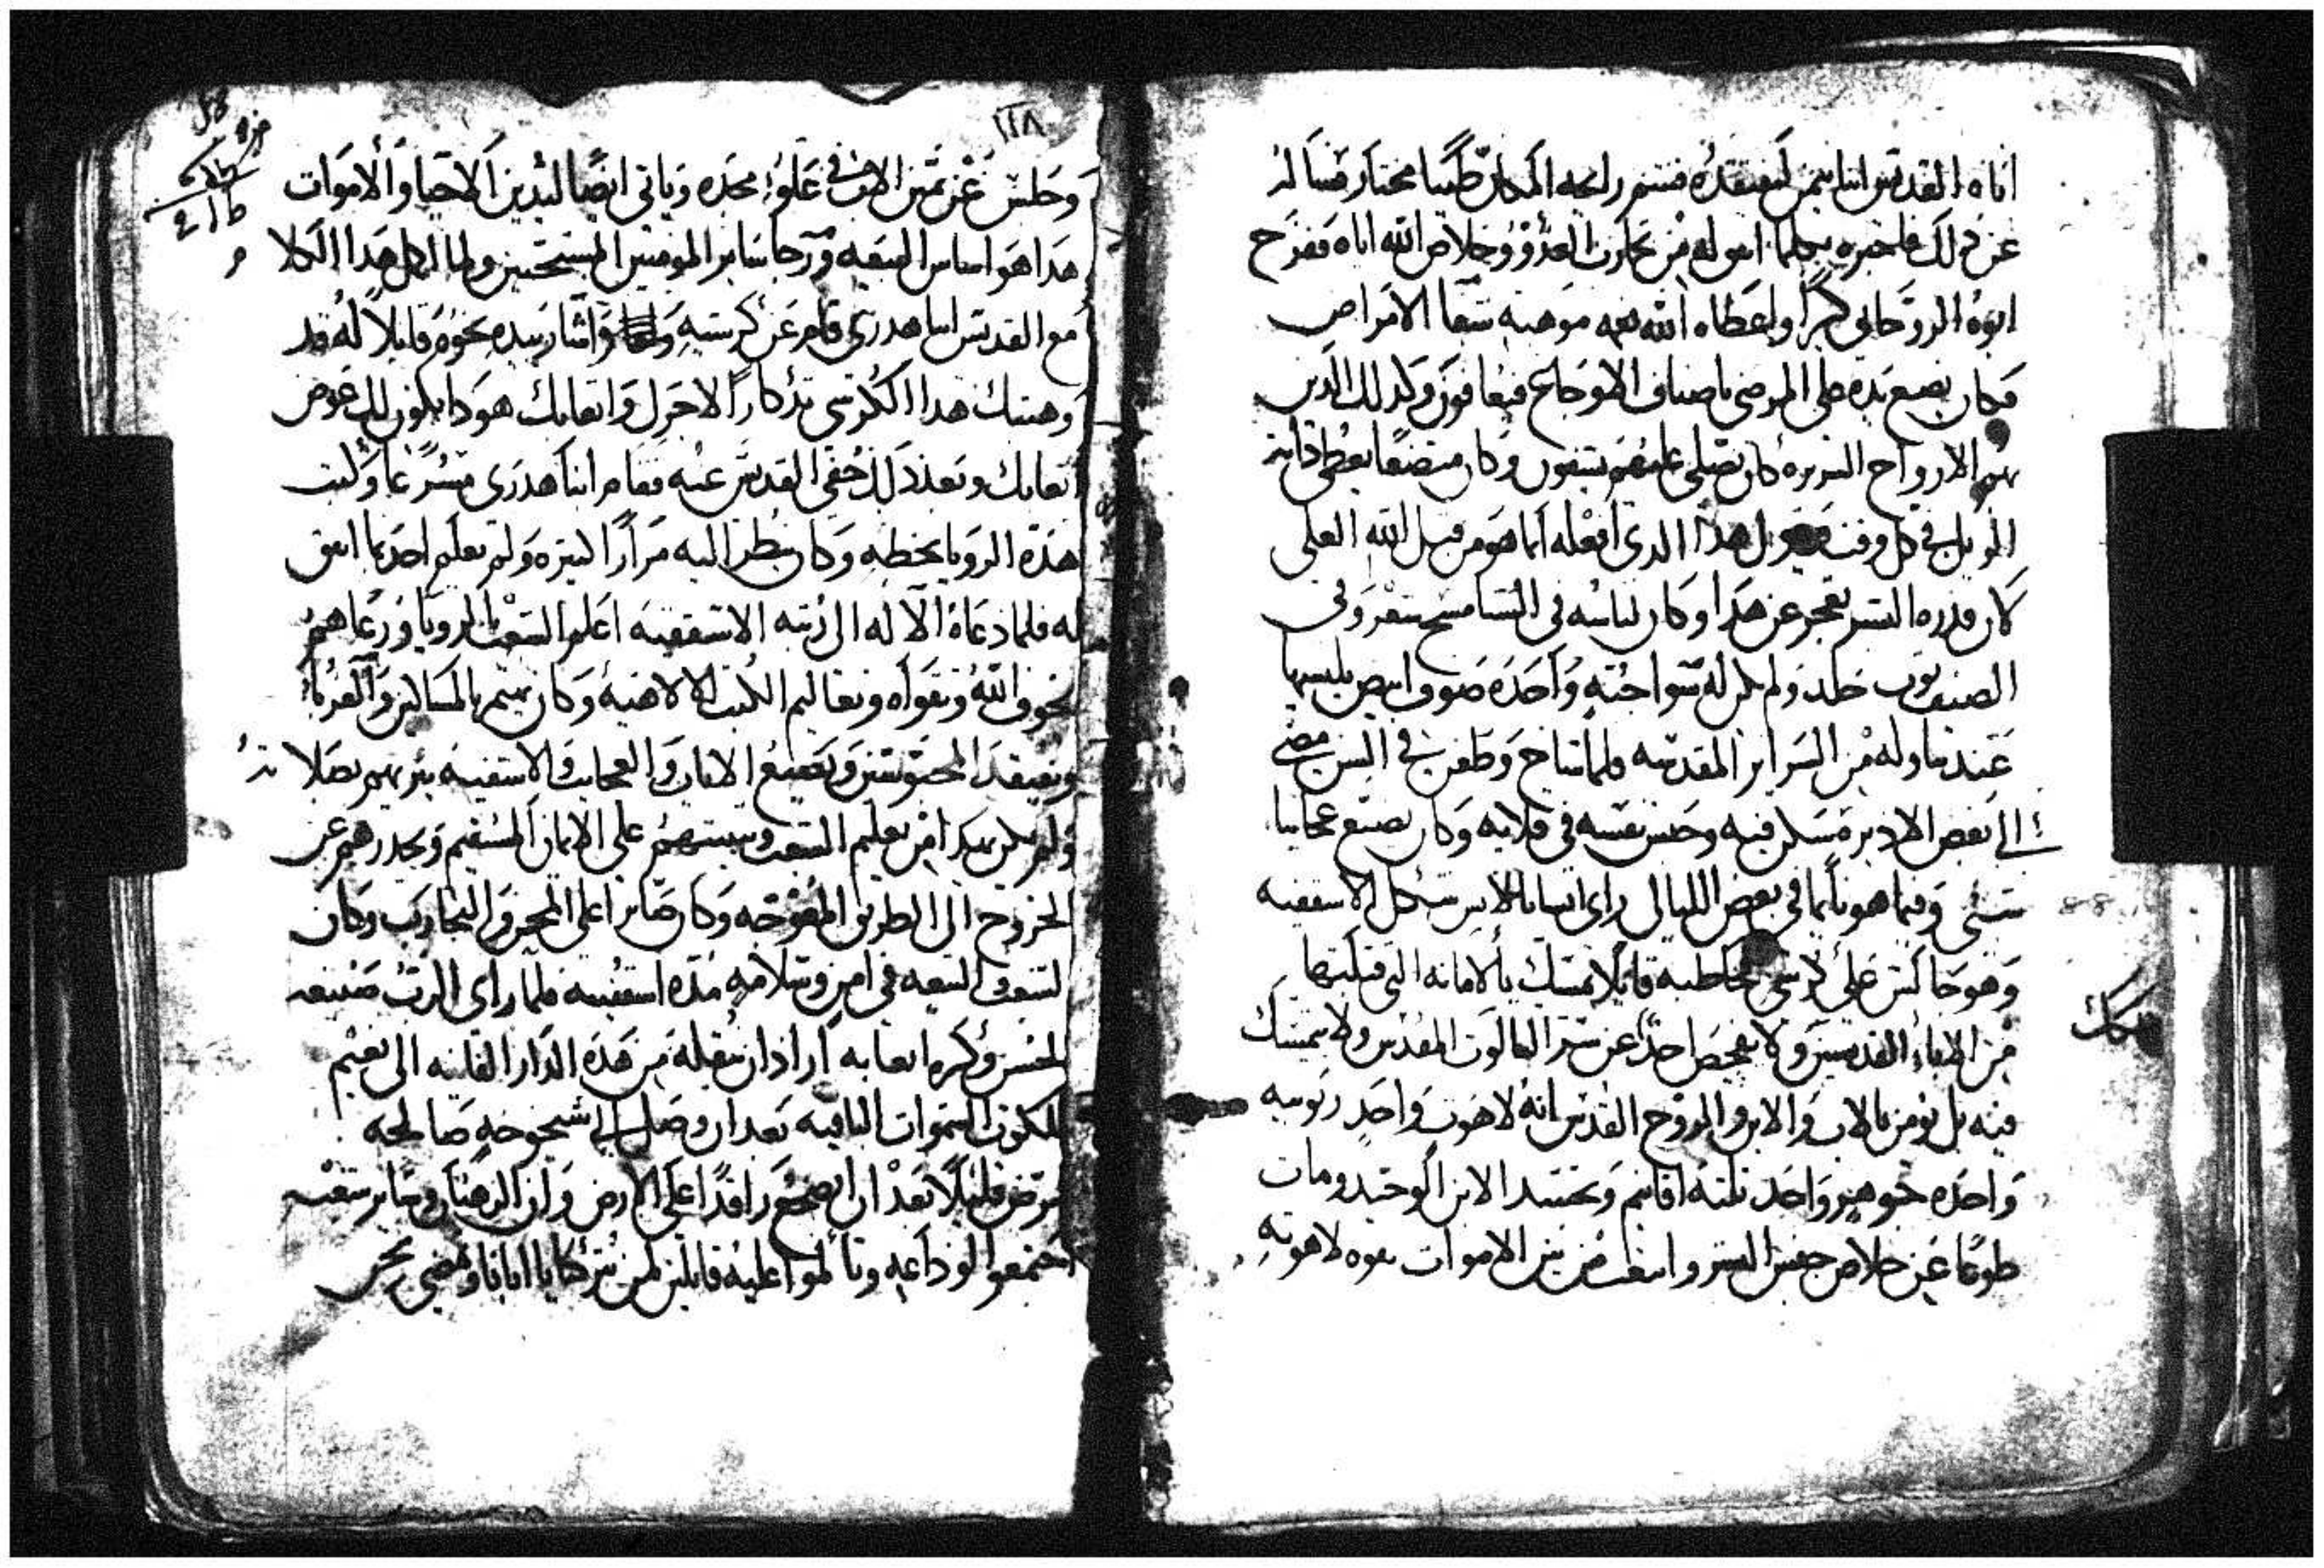 اتاه القديس ابا بيمن ليفتقده فشتم رايحه المكان طيبا مختار فساله
عن ذلك فاخبره بكلما اتفق له من تجارب العدو وخلاص الله اياه ففرح
ابوه الروحاني كثيرا واعطاه الله نعمه موهبه شفا الامراض
فكان يضع يده على المرضى باصناف الاوجاع فيعافون وكذلك الذين
بهم الارواح الشريره كان يصلي عليهم يشفون وكان متضعا يعطي ذاته
الويل في كل وقت فيقول هذا الذي افعله انما هو من قبل الله العلي
لان قدره البشر تعجز عن هذا وكان لباسه في الشتا مسح شعر وفي
الصيف ثوب جلد ولم يكن له سوا جبه واحده صوف ابيض يلبسها
عند تناوله من السراير المقدسه فلما شاخ وطعن في السن مضى
الى بعض الاديره فسكن فيه وحبس نفسه في قلايه وكان يصنع عجايبا
شتى وفيما هو نايما في بعض الليالي راى انسانا لابس شكل الاسقفيه
وهو جالس على كرسي يخاطبه قايلا تمسك بالامانه التي قبلتها
من الاباء القديسين ولا تفحص احدا عن سر الثالوث المقدس ولا تتمسك
فيه بل نومن بالاب والابن والروح القدس انه لاهوت واحد ربوبيه
واحده جوهر واحد ثلثه اقانيم وتجسد الابن الوحيد ومات
طوعا عن خلاص جنس البشر وانبعث من بين الاموات بقوه لاهوته
١١٨
وجلس عن يمين الاب في علو مجده وياتي ايضا ليدين الاحيا والاموات
هذا هو اساس البيعه ورجا ساير المومنين المسيحيين ولما اكمل هذا الكلا
مع القديس ابا هدرى قام عن كرسيه واشار بيده نحوه قايلا له قد
وهبتك هذا الكرسي تذكارا لاجل واتعابك هوذا يكون لك عوض
اتعابك وبعد ذلك خفي القديس عنه فقام انبا هدرى مسرعا وكتب
هذه الرويا بخطه وكان ينظر اليه مرارا كثيره ولم يعلم احد بما اتفق
له فلما دعاه الاله الى رتبه الاسقفيه اعلم الشعب بالرويا ورعاهم
بخوف الله وتقواه وتعاليم الكتب الالاهيه وكان يهتم بالمساكين والغربا
ويفتقد المحبوسين ويصنع الايات والعجايب والاسقفيه تثربهم بصلاته
ولم يكن يهدا من تعليم الشعب ويثبتهم على الايمان المستقيم ويحدرهم عن
الخروج الى الطريق المعوجه وكان صابرا على المحن والتجارب وكان
لشعوب البيعه في امن وسلامه مده اسقفيته فلما راى الرب صنيعه
الحسن وكثره اتعابه اراد ان ينقله من هذه الدار الفانيه الى نعيم
ملكوت السموات الباقيه بعد ان وصل الى شيخوخه صالحه
مرض قليلا بعد ان اضجع راقدا على الارض وان الرهبان وساير شعبه
اجتمعوا لوداعه وتالموا عليه قايلين لمن تتركنا يا ابانا وتمضي نحن